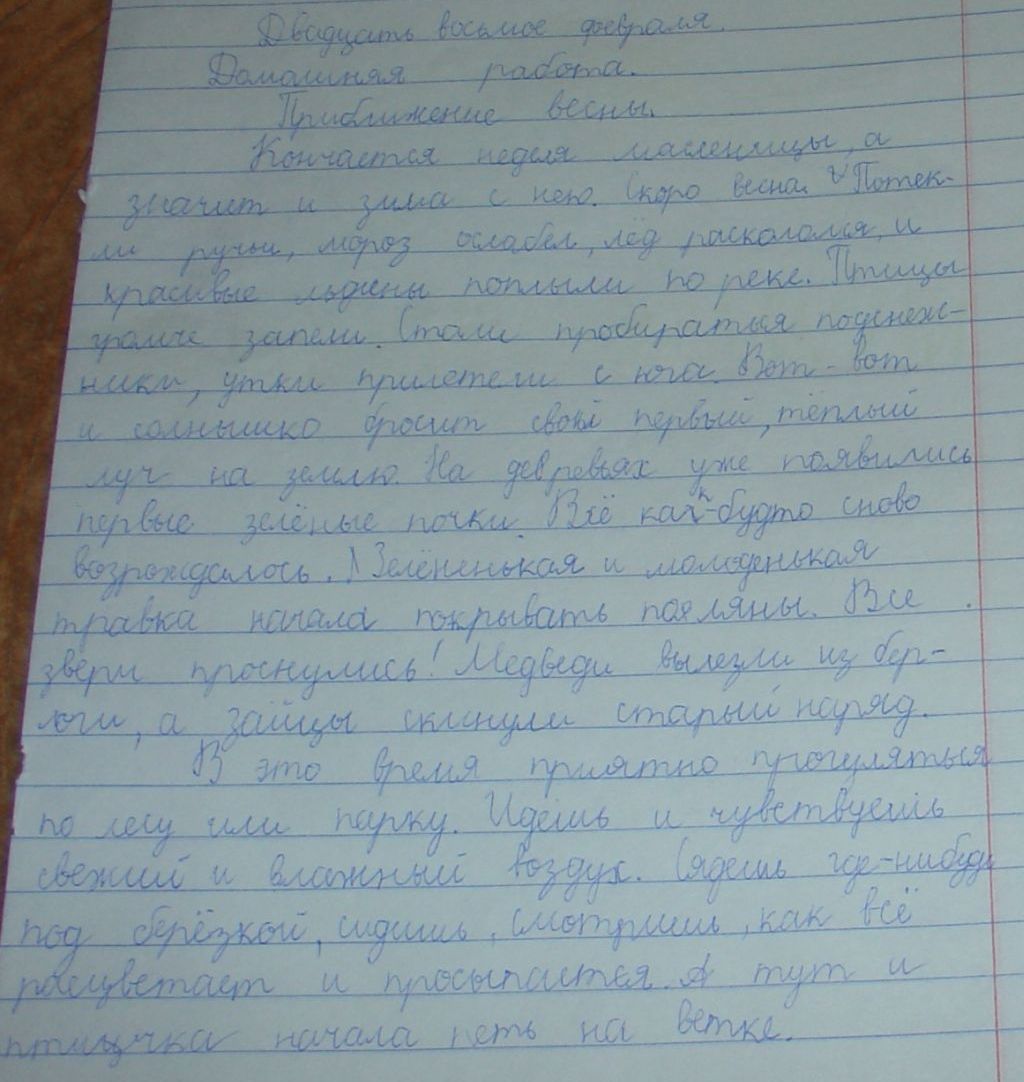 Двадцать восьмое февраля.
Домашняя работа.
Приближение весны.
Кончается неделя масленицы, а
значит и зима с нею. Скоро весна. Потек-
ли ручьи, мороз ослабел, лёд раскололся, и
красивые льдины поплыли по реке. Птицы
громче запели. Стали пробираться подснеж-
ники, утки прилетели с юга. Вот-вот
и солнышко бросит свой первый, тёплый
луч на землю. На деревьях уже появились
первые зелёные почки. Всё как-будто сново
возрождалось. Зелёненькая и молоденькая
травка начала покрывать поляны. Все
звери проснулись! Медведи вылезли из бер-
логи, а зайцы скинули старый наряд.
В это время приятно прогуляться
по лесу или парку. Идёшь и чувствуешь
свежий и влажный воздух. Сядешь где-нибудь
под берёзкой, сидишь, смотришь, как всё
расцветает и просыпается. А тут и
птичка начала петь на ветке.